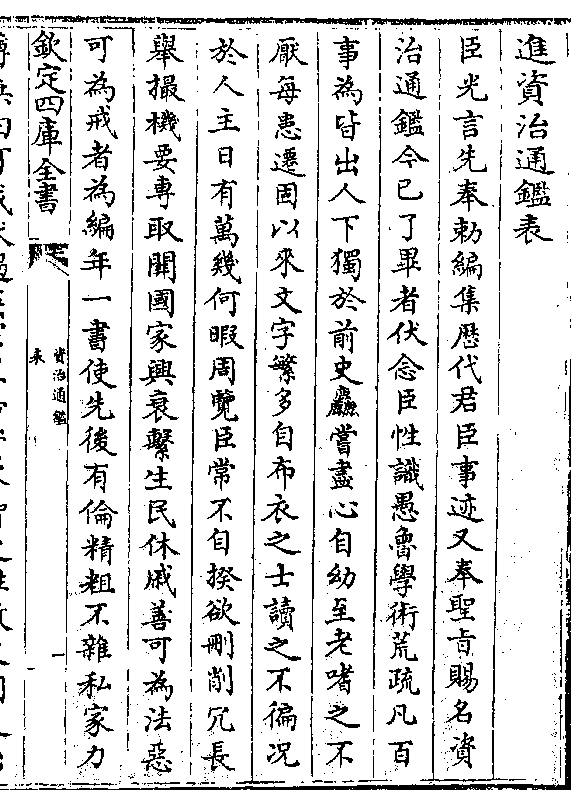 進資治通鑑表
臣光言先奉勅編集歴代君臣事迹又奉聖㫖賜名資
治通鑑今已了畢者伏念臣性識愚魯學術荒疏凡百
事為皆出人下獨於前史麤嘗盡心自幼至老嗜之不
厭每患遷固以來文字繁多自布衣之士讀之不徧况
於人主日有萬幾何暇周覽臣常不自揆欲刪削冗長
舉撮機要專取闗國家興衰繫生民休戚善可為法惡
可為戒者為編年一書使先後有倫精粗不雜私家力
欽定四庫全書
資治通鑑
表
一